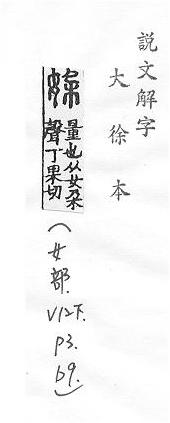 説文解字
大徐本
㛊
量也从女朶
聲丁果切
(女部.V12下.p3.b9.)